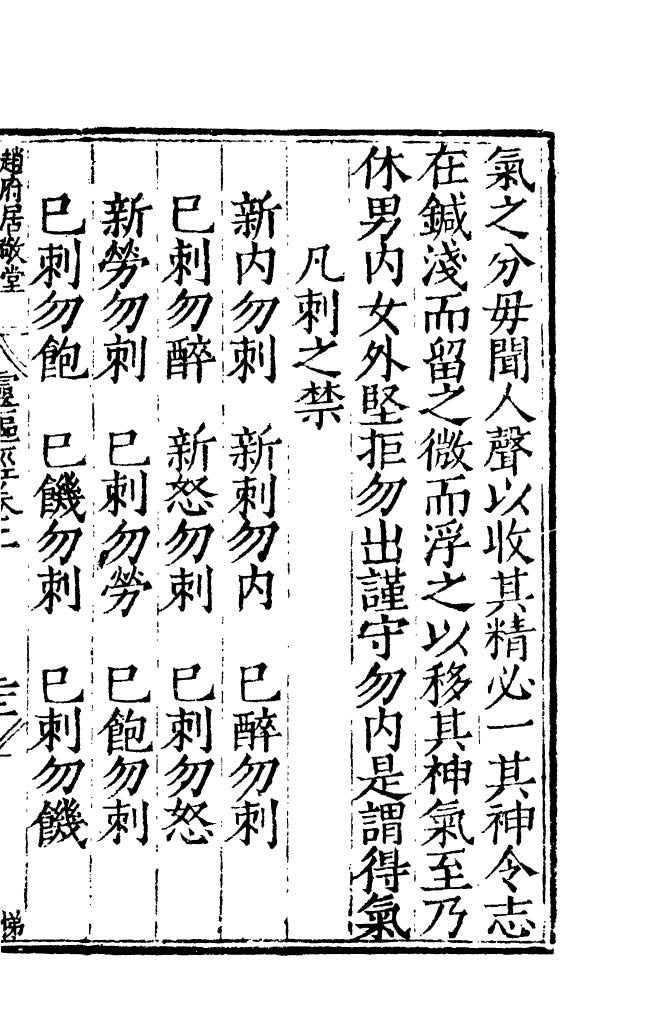 氣之分毋聞人聲以收其精必一其神令志
在鍼淺而留之微而浮之以移其神氣至乃
休男内女外堅拒勿出謹守勿内是謂得氣
凡刺之禁
新内勿刺　新刺勿内　巳醉勿刺
巳刺勿醉　新怒勿刺　巳刺勿怒
新勞勿刺　巳刺勿勞　巳飽勿刺
巳刺勿飽　巳饑勿刺　巳刺勿饑
趙府居敬堂　靈樞經